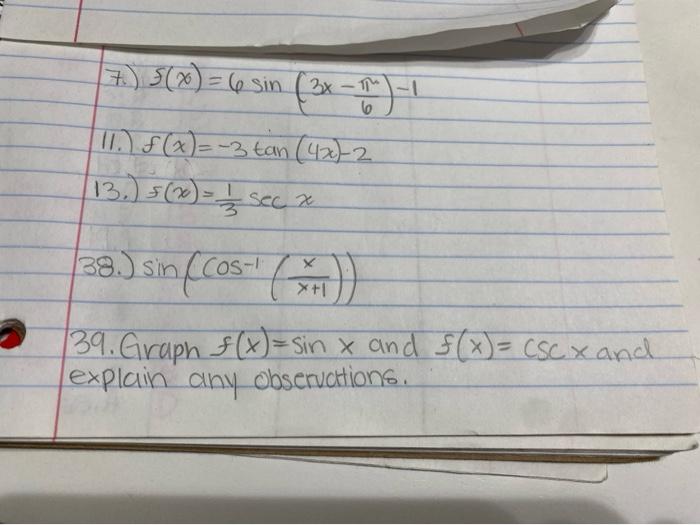 7.) f(x) = 6 sin (3x - π/6) - 1
11.) f(x) = -3 tan (4x) - 2
13.) f(x) = 1/3 sec x
38.) sin (cos⁻¹ (x/(x+1)))
39. Graph f(x) = sin x and f(x) = csc x and
explain any observations.